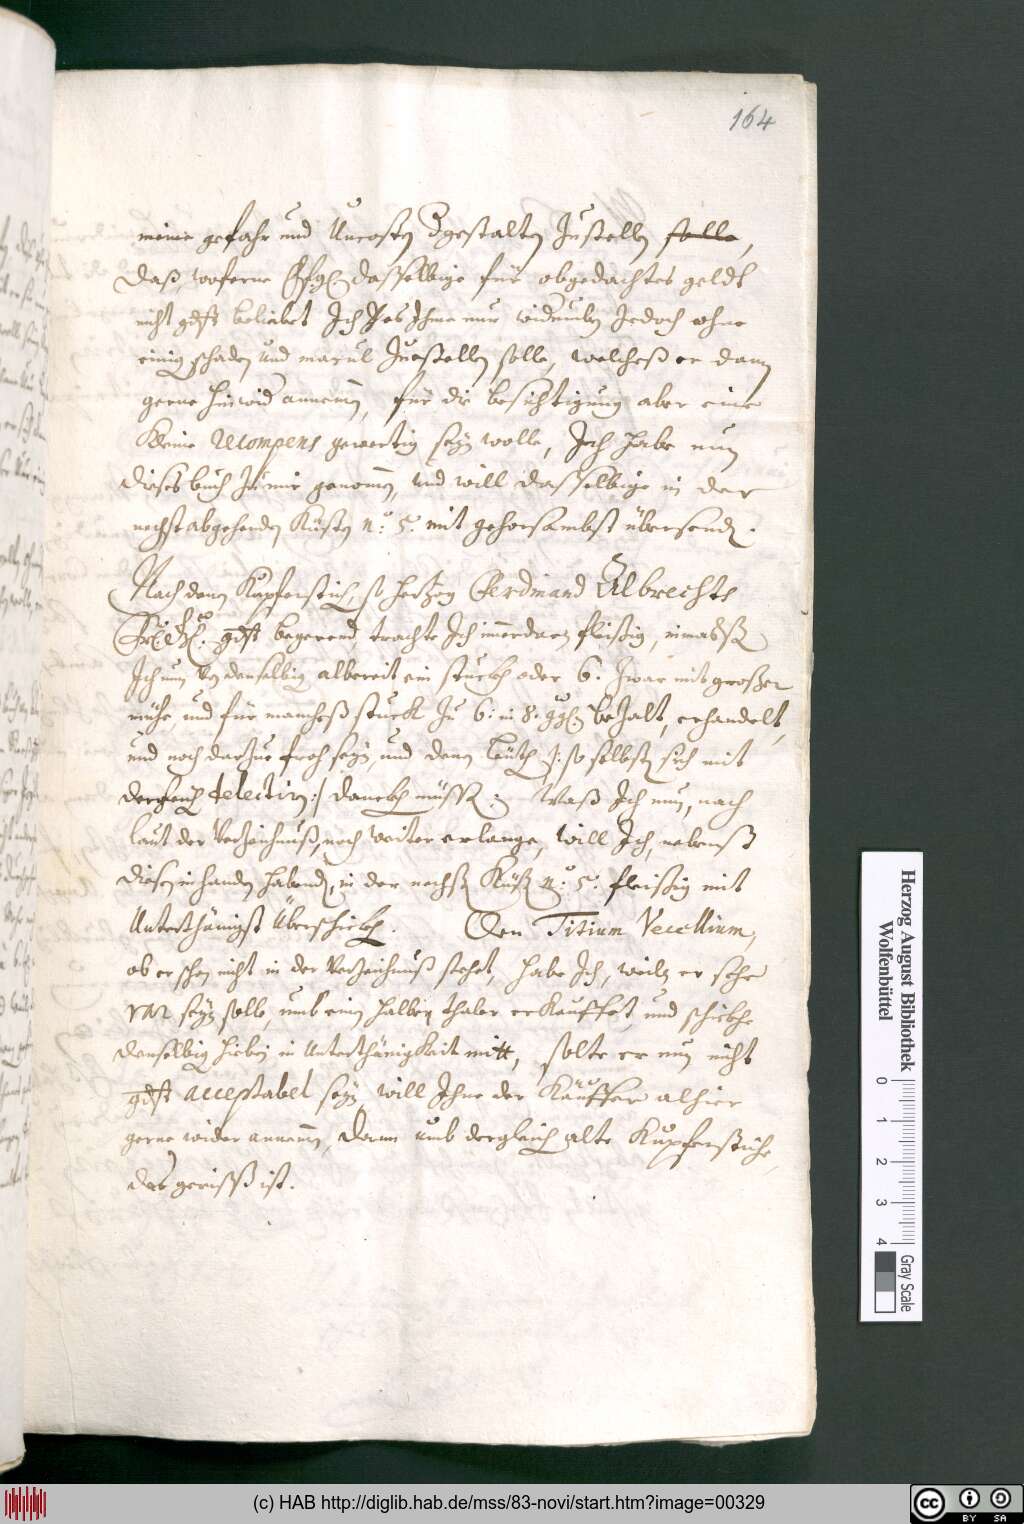 164
meine gefahr und Uncosten dergestalten Zustellen solle,
daß, woferne E. f. g. dasselbige für obgedachtes geldt
nicht gdst beliebet Ich es Ihme nur widerumb Jedoch ohne
einig schaden und macul Zuestellen solle, welcheß er dann
gerne hinwider annemen, für die besichtigung aber eine
kleine recompens gewertig sein wolle, Ich habe nun
dieses buch Zu mir genommen, und will dasselbige in der
nechst abgehenden Küsten n.º 5. mit gehorsambst übersenden.
Nach denen Kupferstich, so hertzog Ferdinand Albrechts
gdst begerend, trachte Ich immerdar fleißig, inmaßen
Ich nun von denselbigen albereit ein stuckh oder 6. Zwar mit großer
mühe, und für mancheß stuck Zu 6: in 8. bezalt, erhandelt,
und noch darzue froh sein, und denen Leüth /: so selbsten sich mit
dergleich delectirn :/ danckh müssen. Waß Ich nun, nach
laut der Verzeichnuß, noch weiter erlange, will Ich, nebenst
diesen in handen habenden, in der nechsten Küsten n.º 5. fleißig mit
Unterthänigst überschicken. Den Titium Vecellium,
ob er schon nicht in der Verzeichnuß stehet, habe Ich, weiln er sehr
rar sein solle, umb einen halben thaler erkauffet, und schickhe
denselbigen hiebei in Unterthänigkeit mitt, solte er nun nicht
gdst acceptabel sein will Ihne der Käuffer alhier
gerne wider annemen, dann umb dergleich alte Kupferstiche,
das geriß ist.
Herzog August Bibliothek
Wolfenbüttel
0 1 2 3 4
Gray Scale
(c) HAB http://diglib.hab.de/mss/83-novi/start.htm?image=00329
cc BY SA